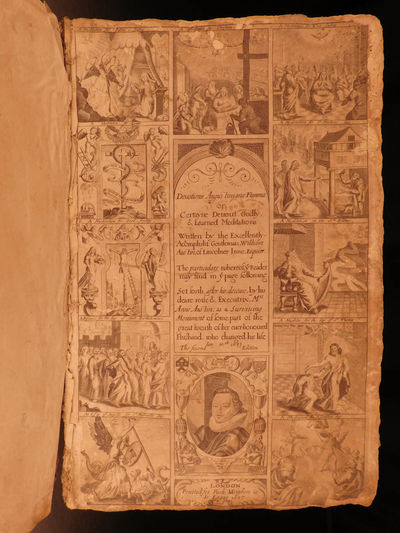 Devotionis Augustinianæ Flamma
or
Certayne Devout Godly
& Learned Meditations
Written by the Excellently-
Accomplisht Gentleman, William
Austin, of Lincolnes Inne, Esquier
The particulars whereof yͤ reader
may find in yͤ page following
Set forth, after his decease, by his
deare wife & Executrix, Mrs
Anne Austin; as a Surviving
Monument of some part of the
great worth of her ever-honourd
Husband, who changed his life
The second Edition
LONDON
Printed for